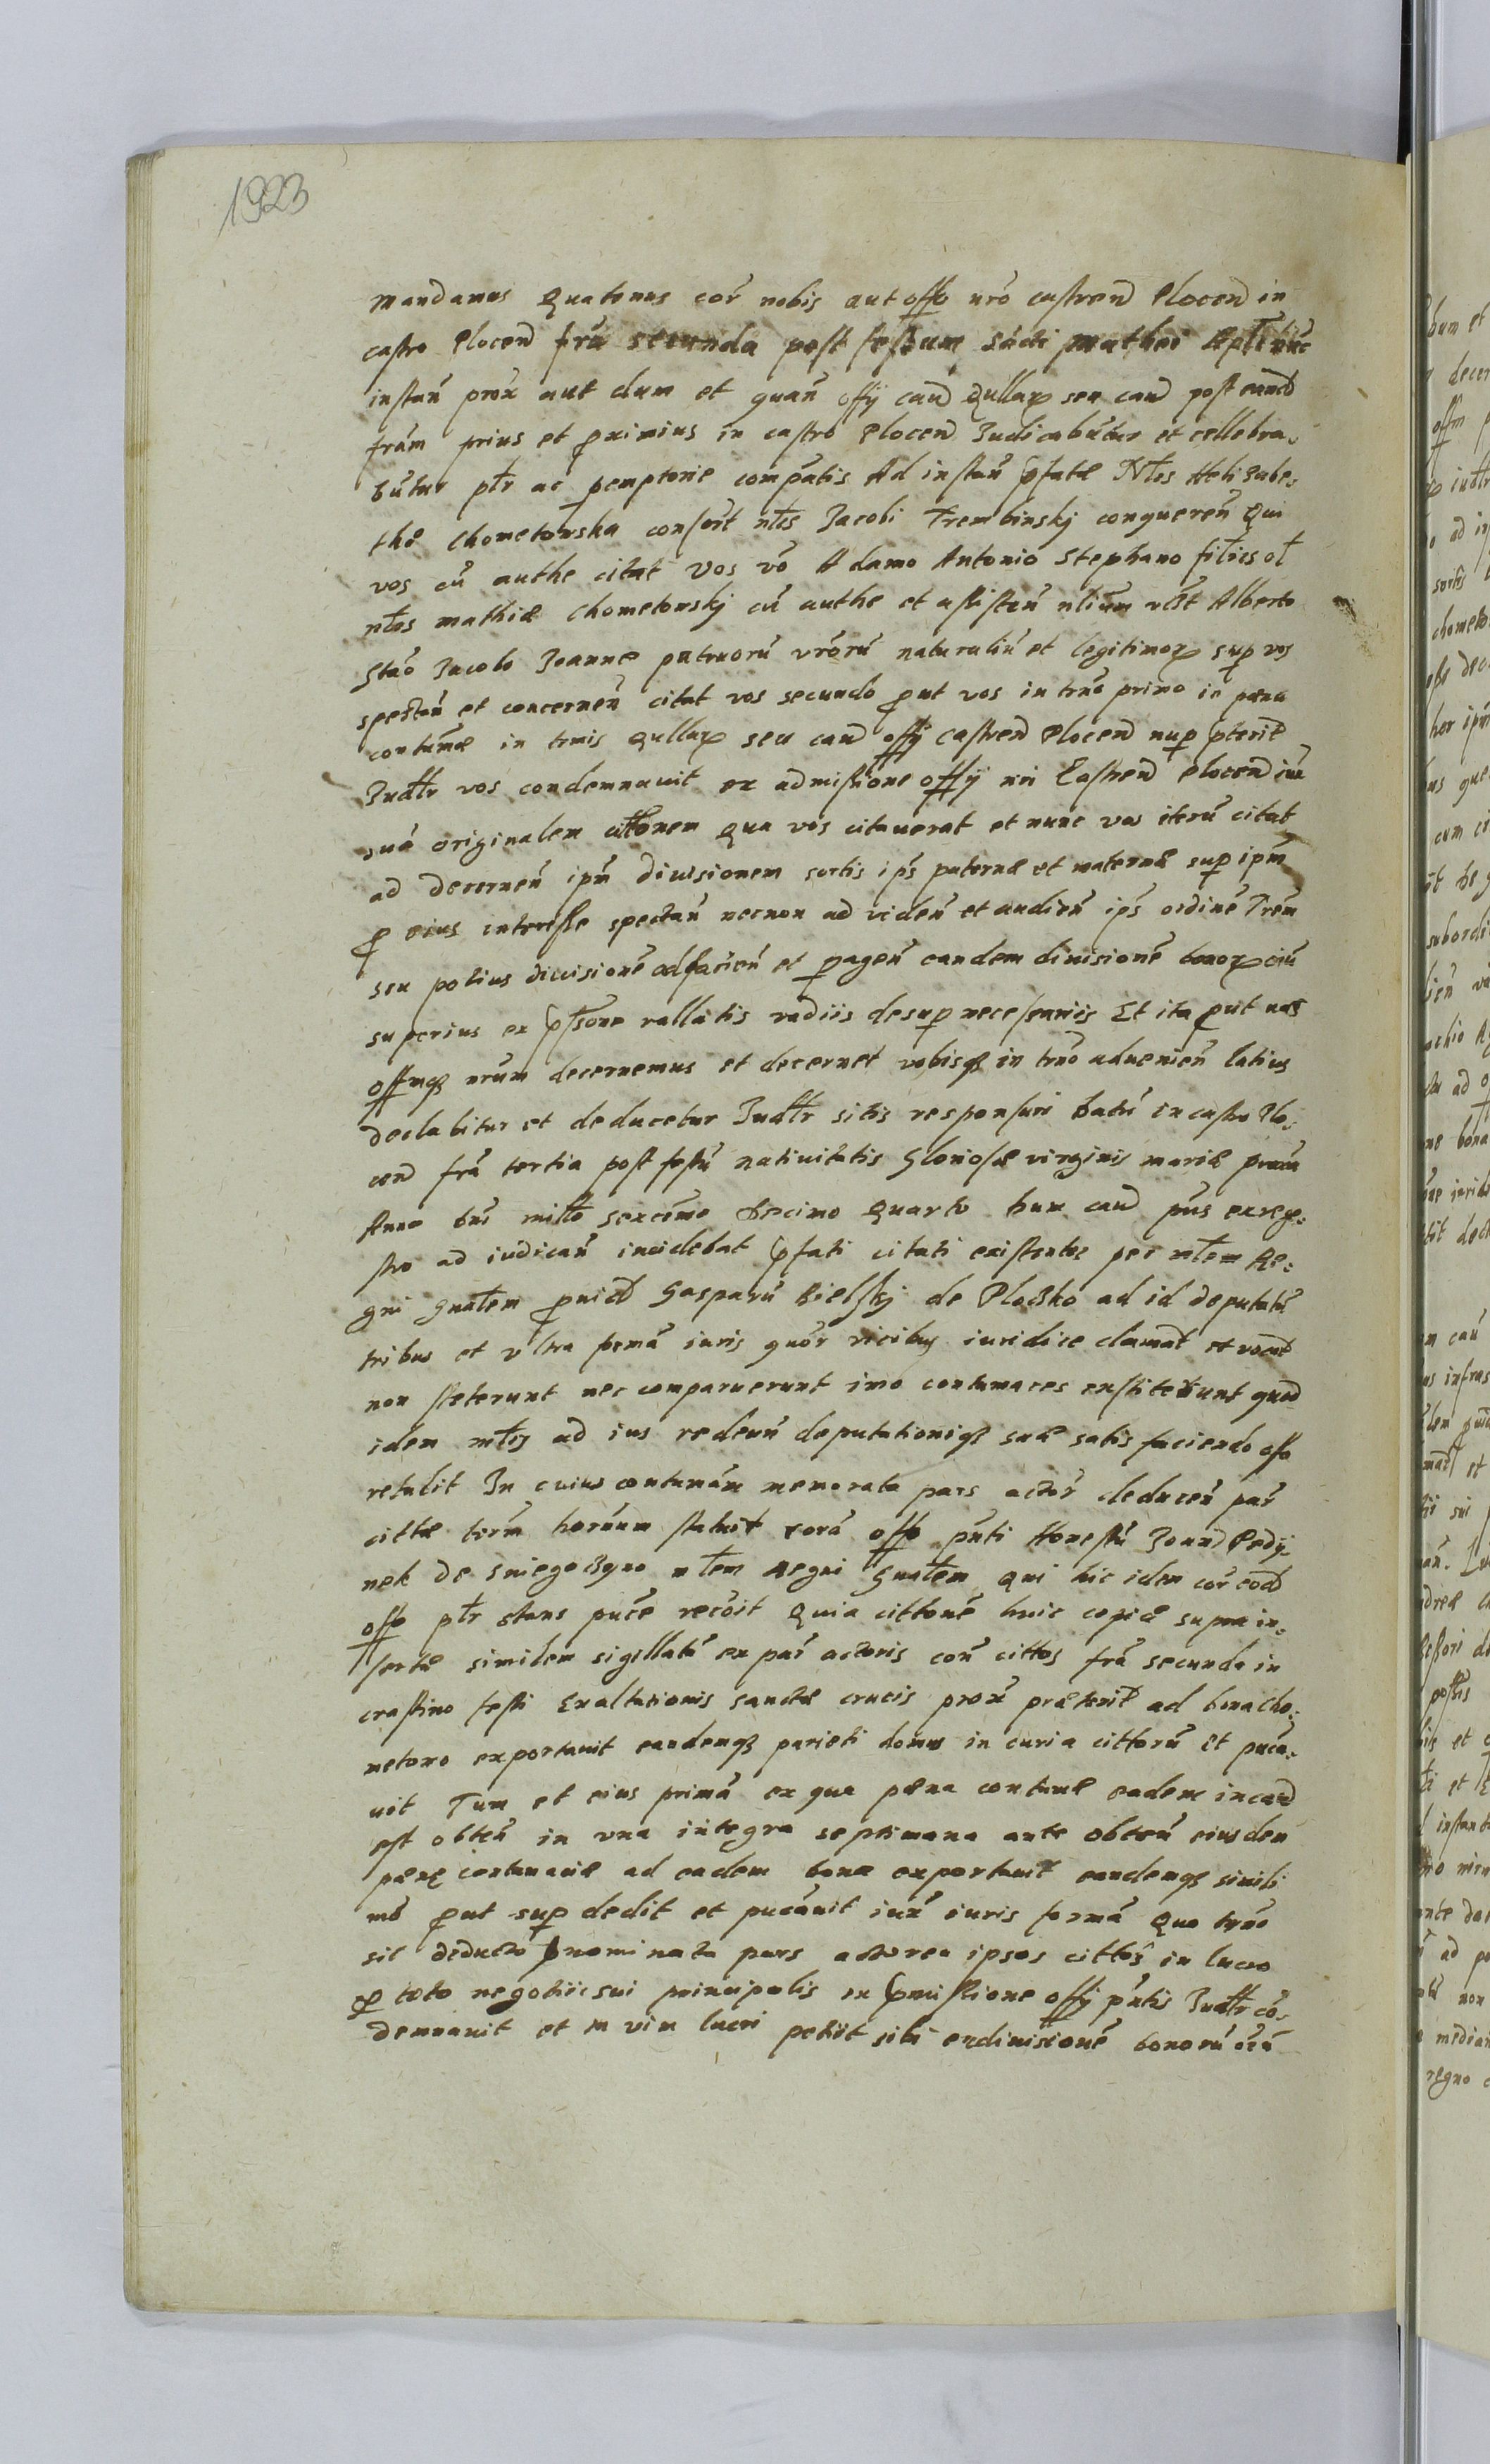 1923
mandamus Quatenus cor̃ nobis aut offo nr̃o castren̄ Plocen̄ in
castro Plocen̄ fr̃ia secunda post festum Sācti Mathei Apl̃i nūc
instan̄ prox aut dum et quan̄ offij cau̅ Qullar̃ seu cau̅ post eand̄
fr̃iam prius et ꝓximius in castro Plocen̄ Judicabūtur et cellebra⸗
būtur ptr̄ ac pemptorie compātis Ad instan̄ ꝓfatæ Nl̃is Helisabe⸗
thæ Chometowska consort nl̃is Jacobi Trembinskj conqueren̄ Qui
vos cū authe citat Vos vō Adamo Antonio Stephano filĩos ol̃
nl̃is mathiæ Chometowskj cū authe et assisten̄ nl̃ium vĩst Alberto
Stāo Jacobo Joanne patruorū vr̃orū naturaliū et legitimor̃ sup vos
spectan̄ et concernen̄ citat vos secundo ꝓut vos in trn̄o primo in pæna
contumæ in trn̄is Qullar̃ seu cau̅ offij castren̄ Plocen̄ nup ꝓterit̄
Judl̃r vos condemnauit ex admissione offij nr̃i Castren̄ Plocen̄ iux
suā originalem citt̄onem Qua vos citauerat et nunc vos iterū citat
ad decernen̄ ipm̃ diuisionem sortis ips̃ paternæ et maternæ sup ipm̃
ꝓ eius interesse spectan̄ necnon ad viden̄ et audien̄ ips̃ ordinē Trēm
seu potius diuisionē adfacien̄ et ꝑagen̄ eandem diuisionē bonor̃ oīū
superius ex ꝓssone vallatis vadiis desup necessariis Et ita ꝓut nos
Offmqꝫ nr̃um decernemus et decernet vobisqꝫ in trn̄o aduenien̄ latius
declabitur et deducetur Judl̃r sitis responsuri Datū in castro Plo⸗
cen̄ fr̃a tertia post festū natiuitatis Gloriosæ virginis mariæ proxa
Anno dn̄i mill̃o sexcēmo decimo Quarto hanc cau̅ pn̄s ex rege⸗
stro ad iudican̄ incidebat ꝓfati citati existentes per ml̃em Re⸗
gni gnal̃em ꝓuid̄ Gasparū Bielskj de Ploczko ad id deputatū
tribus et vltra premā iuris quor̄ vicibus iuridice clamat̄ et vocat̄
non steterunt nec comparuerunt imo contumaces exstiterunt quod
idem ml̃es ad ius redeun̄ deputationiqꝫ suæ satis faciendo offo
retulit In cuius contumām memorata pars actor̄ deducen̄ par̄
cittæ term̄ horūm statuit corā offo pn̄ti Honestū Joan̄ Pedy⸗
nek de Sniegoczyno ml̃em Regni Gnal̃em Qui hic idem cor̃ eod̄
offo ptr̄ stans puc̄e recōit Quia cittonē huic copiæ supra in⸗
sertæ similem sigillatā ex par̄ actoris con̄ cittos fr̃a secunda in
crastino festi Exaltationis sanctæ crucis prox̄ præterit̄ ad bona Cho⸗
metowo exportauit eandemqꝫ parieti domus in curia cittorū et puca⸗
uit Tum et eius primā ex qua pæna contumæ eadem in cau̅
est obten̄ in vna integra septimana ante obten̄ eiusdem
pænę contumaciæ ad eadem bona exportauit eandemqꝫ simili
mō ꝓut sup dedit et pucāuit iux̄ iuris formā Quo trn̄o
sic deducto ꝓnominata pars actorea ipsos cittos in lucro
ꝓ toto negotii sui principalis ex ꝓmissione offij pn̄tis Judl̃r cō⸗
demnauit et in vim lucri petiit sibi ex diuisionē bonorū oīū